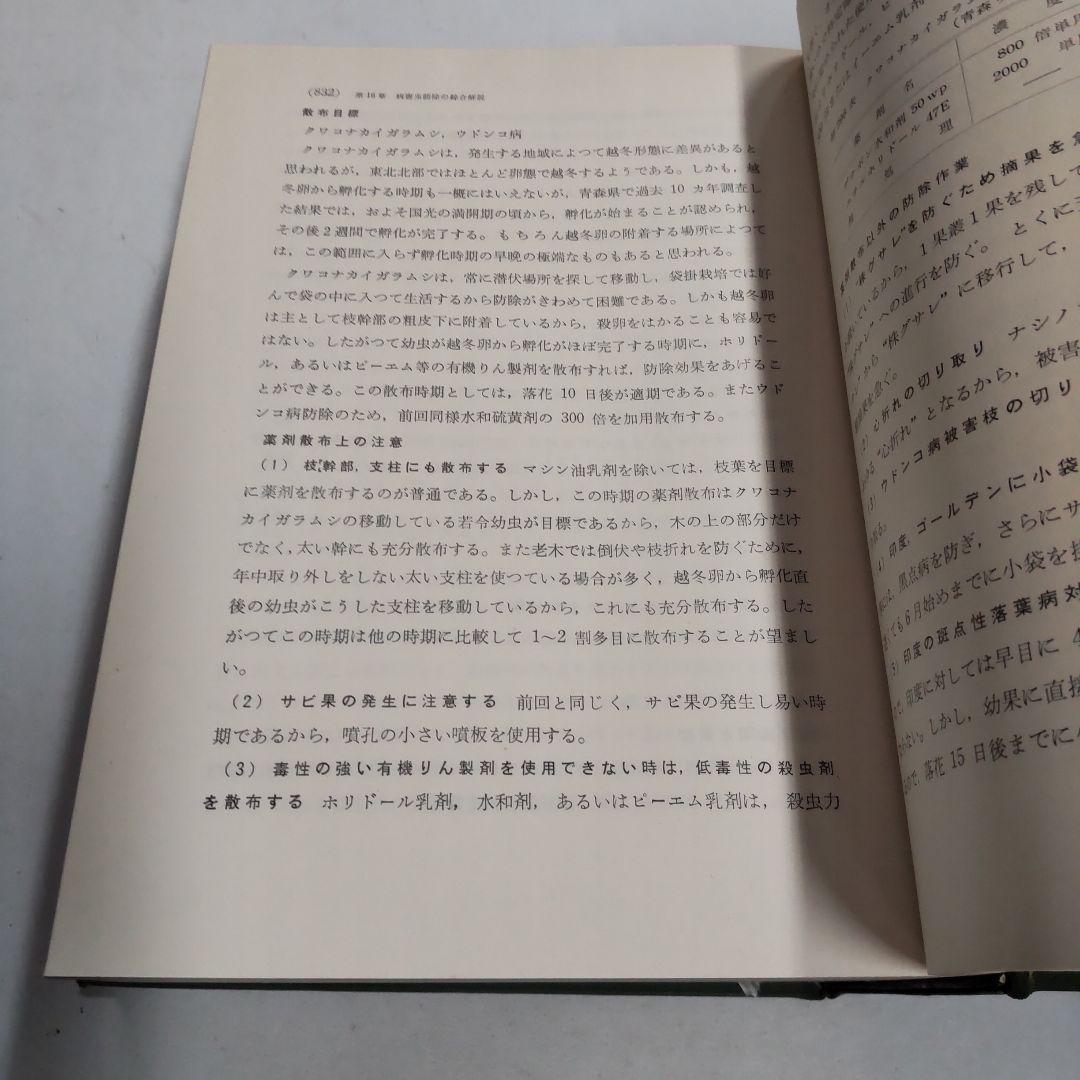 (832) 第16章 病害虫防除の綜合解説
散布目標
クワコナカイガラムシ，ウドンコ病
クワコナカイガラムシは，発生する地域によつて越冬形態に差異があると
思われるが，東北北部ではほとんど卵態で越冬するようである。しかも，越
冬卵から孵化する時期も一概にはいえないが，青森県で過去 10 カ年調査し
た結果では，およそ国光の満開期の頃から，孵化が始まることが認められ，
その後2週間で孵化が完了する。もちろん越冬卵の附着する場所によつて
は，この範囲に入らず孵化時期の早晩の極端なものもあると思われる。
クワコナカイガラムシは，常に潜伏場所を探して移動し，袋掛栽培では好
んで袋の中に入つて生活するから防除がきわめて困難である。しかも越冬卵
は主として枝幹部の粗皮下に附着しているから，殺卵をはかることも容易で
はない。したがつて幼虫が越冬卵から孵化がほぼ完了する時期に，ホリドー
ル，あるいはピーエム等の有機りん製剤を散布すれば，防除効果をあげるこ
とができる。この散布時期としては，落花 10 日後が適期である。またウド
ンコ病防除のため，前回同様水和硫黄剤の 300 倍を加用散布する。
薬剤散布上の注意
(1) 枝幹部，支柱にも散布する マシン油乳剤を除いては，枝葉を目標
に薬剤を散布するのが普通である。しかし，この時期の薬剤散布はクワコナ
カイガラムシの移動している若令幼虫が目標であるから，木の上の部分だけ
でなく，太い幹にも充分散布する。また老木では倒伏や枝折れを防ぐために，
年中取り外しをしない太い支柱を使つている場合が多く，越冬卵から孵化直
後の幼虫がこうした支柱を移動しているから，これにも充分散布する。した
がつてこの時期は他の時期に比較して 1〜2 割多目に散布することが望まし
い。
(2) サビ果の発生に注意する 前回と同じく，サビ果の発生し易い時
期であるから，噴孔の小さい噴板を使用する。
(3) 毒性の強い有機りん製剤を使用できない時は，低毒性の殺虫剤
を散布する ホリドール乳剤，水和剤，あるいはピーエム乳剤は，殺虫力
クワコナカイガラム
(青森
薬 剤 名
濃 度
水和剤 50 wp
800 倍単用
47E
2000
散布以外の防除作業
(1) “株グサレ”を防ぐため摘果を急
いているから，1果叢1果を残して
への進行を防ぐ。とくに
から“株グサレ”に移行して，
を急ぐ。
(2) 心折れの切り取り ナシノ
る“心折れ”となるから，被害
(3) ウドンコ病被害枝の切り
(4) 印度，ゴールデンに小袋
には，黒点病を防ぎ，さらにサ
ても6月始めまでに小袋を
(5) 印度の斑点性落葉病対
で，印度に対しては早目に 4
ない。しかし，幼果に直接
ので，落花 15 日後までに